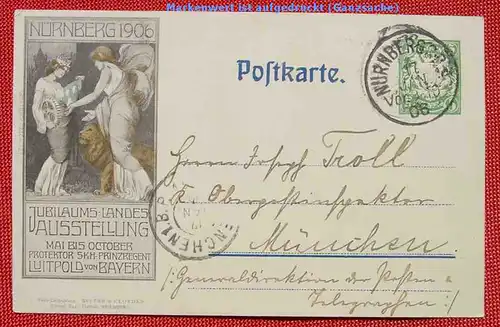 Markenwert ist aufgedruckt (Ganzsache)
NÜRNBERG 1906
JUBILÄUMS-LANDES
AUSSTELLUNG
MAI BIS OCTOBER
PROTEKTOR S.K.H. PRINZREGENT
LUITPOLD VON BAYERN
Postkarte.
NÜRNBERG
06
Herrn Joseph Troll
K. Obergeftinspektor
München.
/: Generaldirektion der Posten &
Telegraphen :/